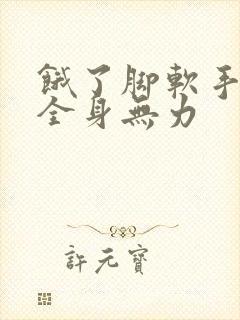 餓了脚軟手
全身無力
許元寶